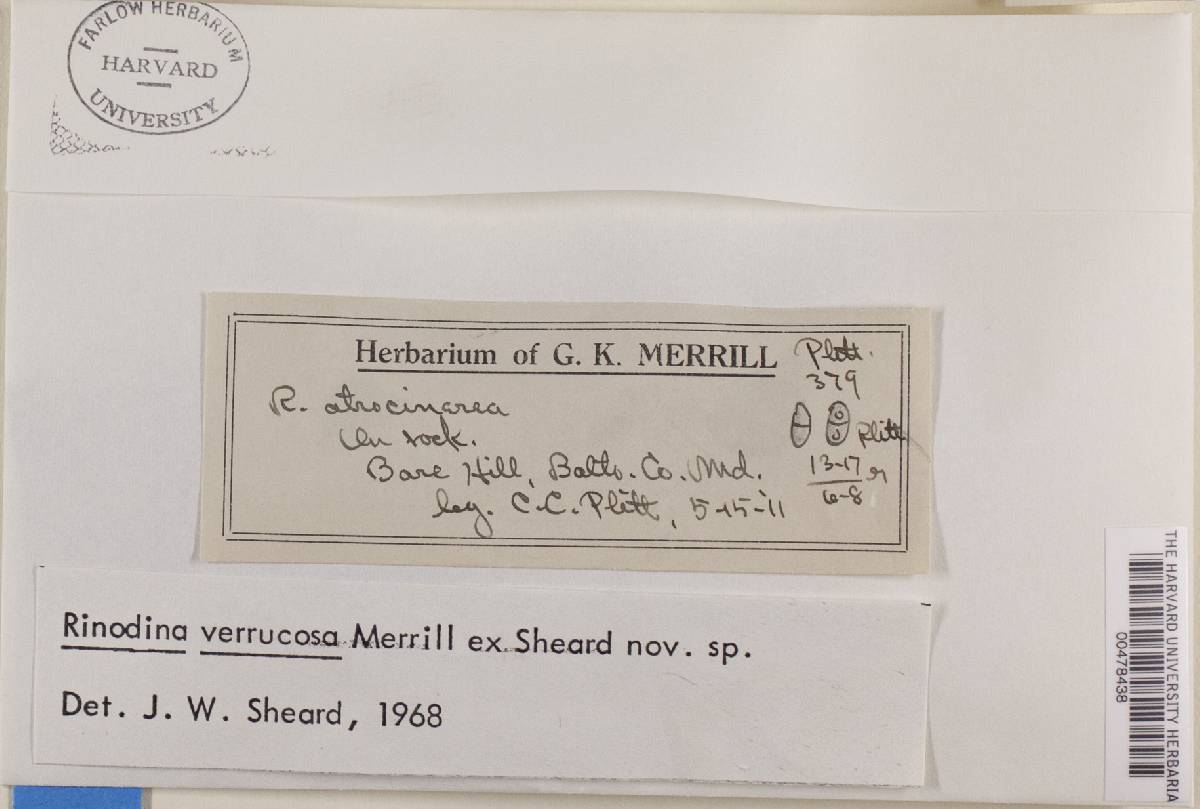 FARLOW HERBARIUM
HARVARD
UNIVERSITY
Herbarium of G. K. MERRILL
Plitt.
379
R. atrocinerea
On rock.
Plitt
Bare Hill, Balto. Co. Md.
13-17
6-8
leg. C. C. Plitt, 5-15-'11
Rinodina verrucosa Merrill ex Sheard nov. sp.
Det. J. W. Sheard, 1968
THE HARVARD UNIVERSITY HERBARIA
00478438